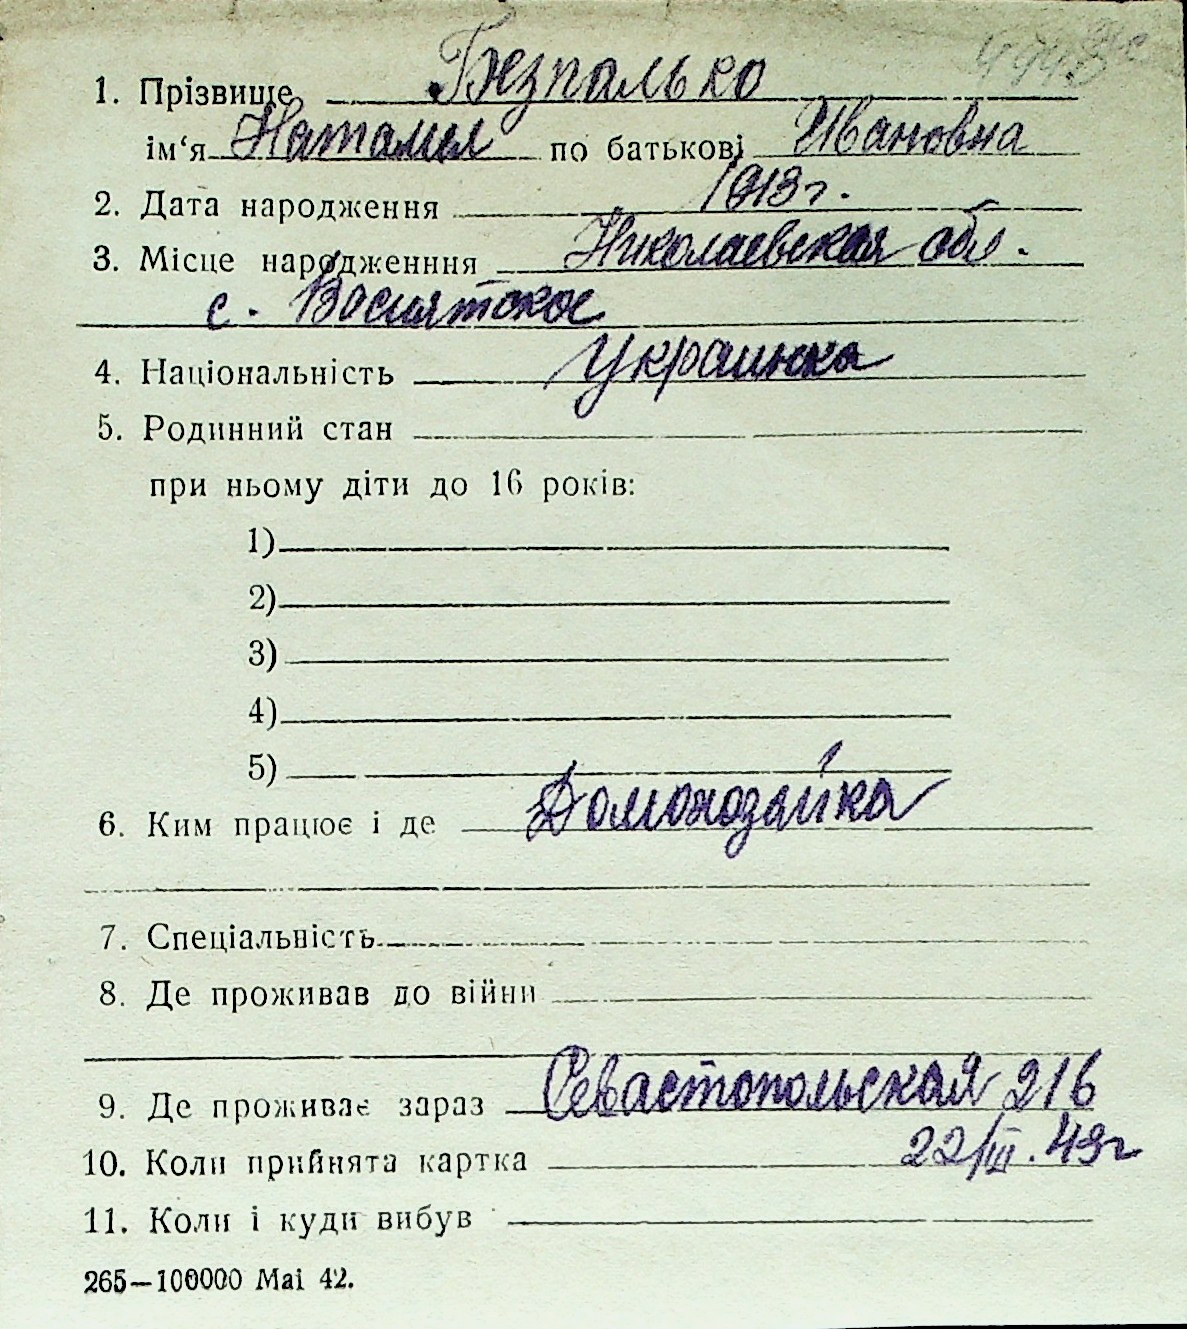 1. Прізвище Безпалько
ім‘я Наталия по батькові Ивановна
2. Дата народження 1918 г.
3. Місце народженння Николаевская обл.
с. Восиятское
4. Національність Украинка
5. Родинний стан
при ньому діти до 16 років:
1)
2)
3)
4)
5)
6. Ким працює і де Домохозайка
7. Спеціальність
8. Де проживав до війни
9. Де проживає зараз Севастопольская 216
10. Коли прийнята картка 22/III. 43г
11. Коли і куди вибув
265—100000 Mai 42.